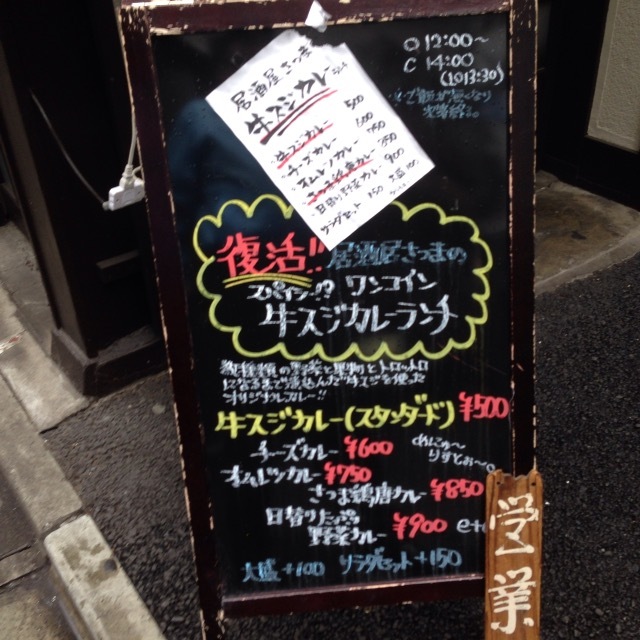 O 12:00〜
C 14:00
(LO13:30)
居酒屋さつま
牛スジカレー
牛スジカレー 500
チーズカレー
オムレツカレー
日替り野菜カレー 900
サラダセット 150
復活!! 居酒屋さつまの
スパイシー!? ワンコイン
牛スジカレーランチ
数種類の野菜と果物とトロットロ
になるまで煮込んだ牛スジを使った
オリジナルカレー!!
牛スジカレー(スタンダード) ¥500
チーズカレー ¥600
オムレツカレー ¥750
さつま鶏唐カレー ¥850
日替りたっぷり
野菜カレー ¥900 etc
大盛+100 サラダセット+150
営業